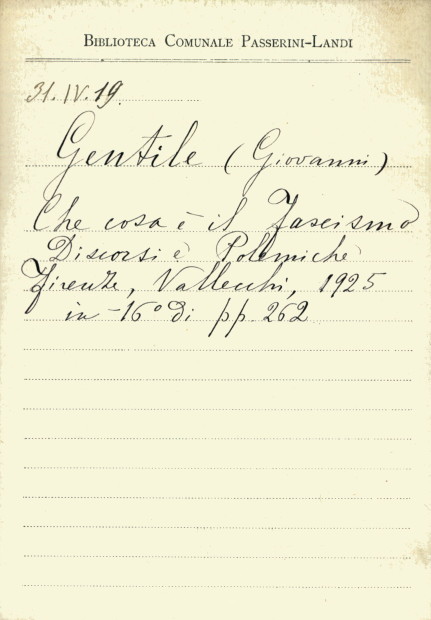 BIBLIOTECA COMUNALE PASSERINI-LANDI
31.IV.19.
Gentile (Giovanni)
Che cosa è il Fascismo
Discorsi e Polemiche
Firenze, Vallecchi, 1925
in-16° di pp. 262